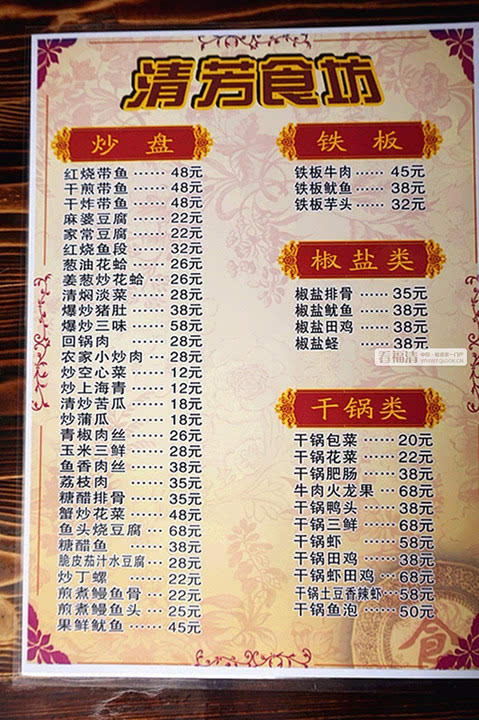 清芳食坊
炒盘
红烧带鱼······48元
干煎带鱼······48元
干炸带鱼······48元
麻婆豆腐······22元
家常豆腐······22元
红烧鱼段······32元
葱油花蛤······26元
姜葱炒花蛤···26元
清焖淡菜······28元
爆炒猪肚······38元
爆炒三味······58元
回锅肉······28元
农家小炒肉···28元
炒空心菜······12元
炒上海青······12元
清炒苦瓜······18元
炒蒲瓜······18元
青椒肉丝······26元
玉米三鲜······28元
鱼香肉丝······38元
荔枝肉······35元
糖醋排骨······35元
蟹炒花菜······48元
鱼头烧豆腐···68元
糖醋鱼······38元
脆皮茄汁水豆腐··28元
炒丁螺···22元
煎煮鳗鱼骨···22元
煎煮鳗鱼头···25元
果鲜鱿鱼······45元
铁板
铁板牛肉······45元
铁板鱿鱼······38元
铁板芋头······32元
椒盐类
椒盐排骨······35元
椒盐鱿鱼······38元
椒盐田鸡······38元
椒盐蛏······38元
看福清
干锅类
干锅包菜······20元
干锅花菜······22元
干锅肥肠······38元
牛肉火龙果···68元
干锅鸭头······38元
干锅三鲜······68元
干锅虾······58元
干锅田鸡······38元
干锅虾田鸡···68元
干锅土豆香辣虾··58元
干锅鱼泡······50元
食